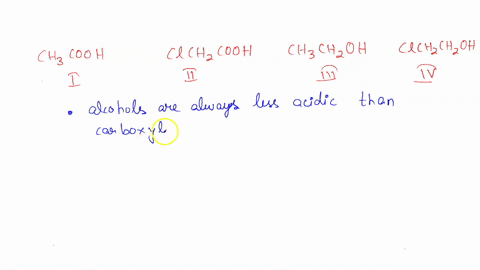 CH₃COOH ClCH₂COOH CH₃CH₂OH ClCH₂CH₂OH
I II III IV
• alcohols are always less acidic than
carboxyl